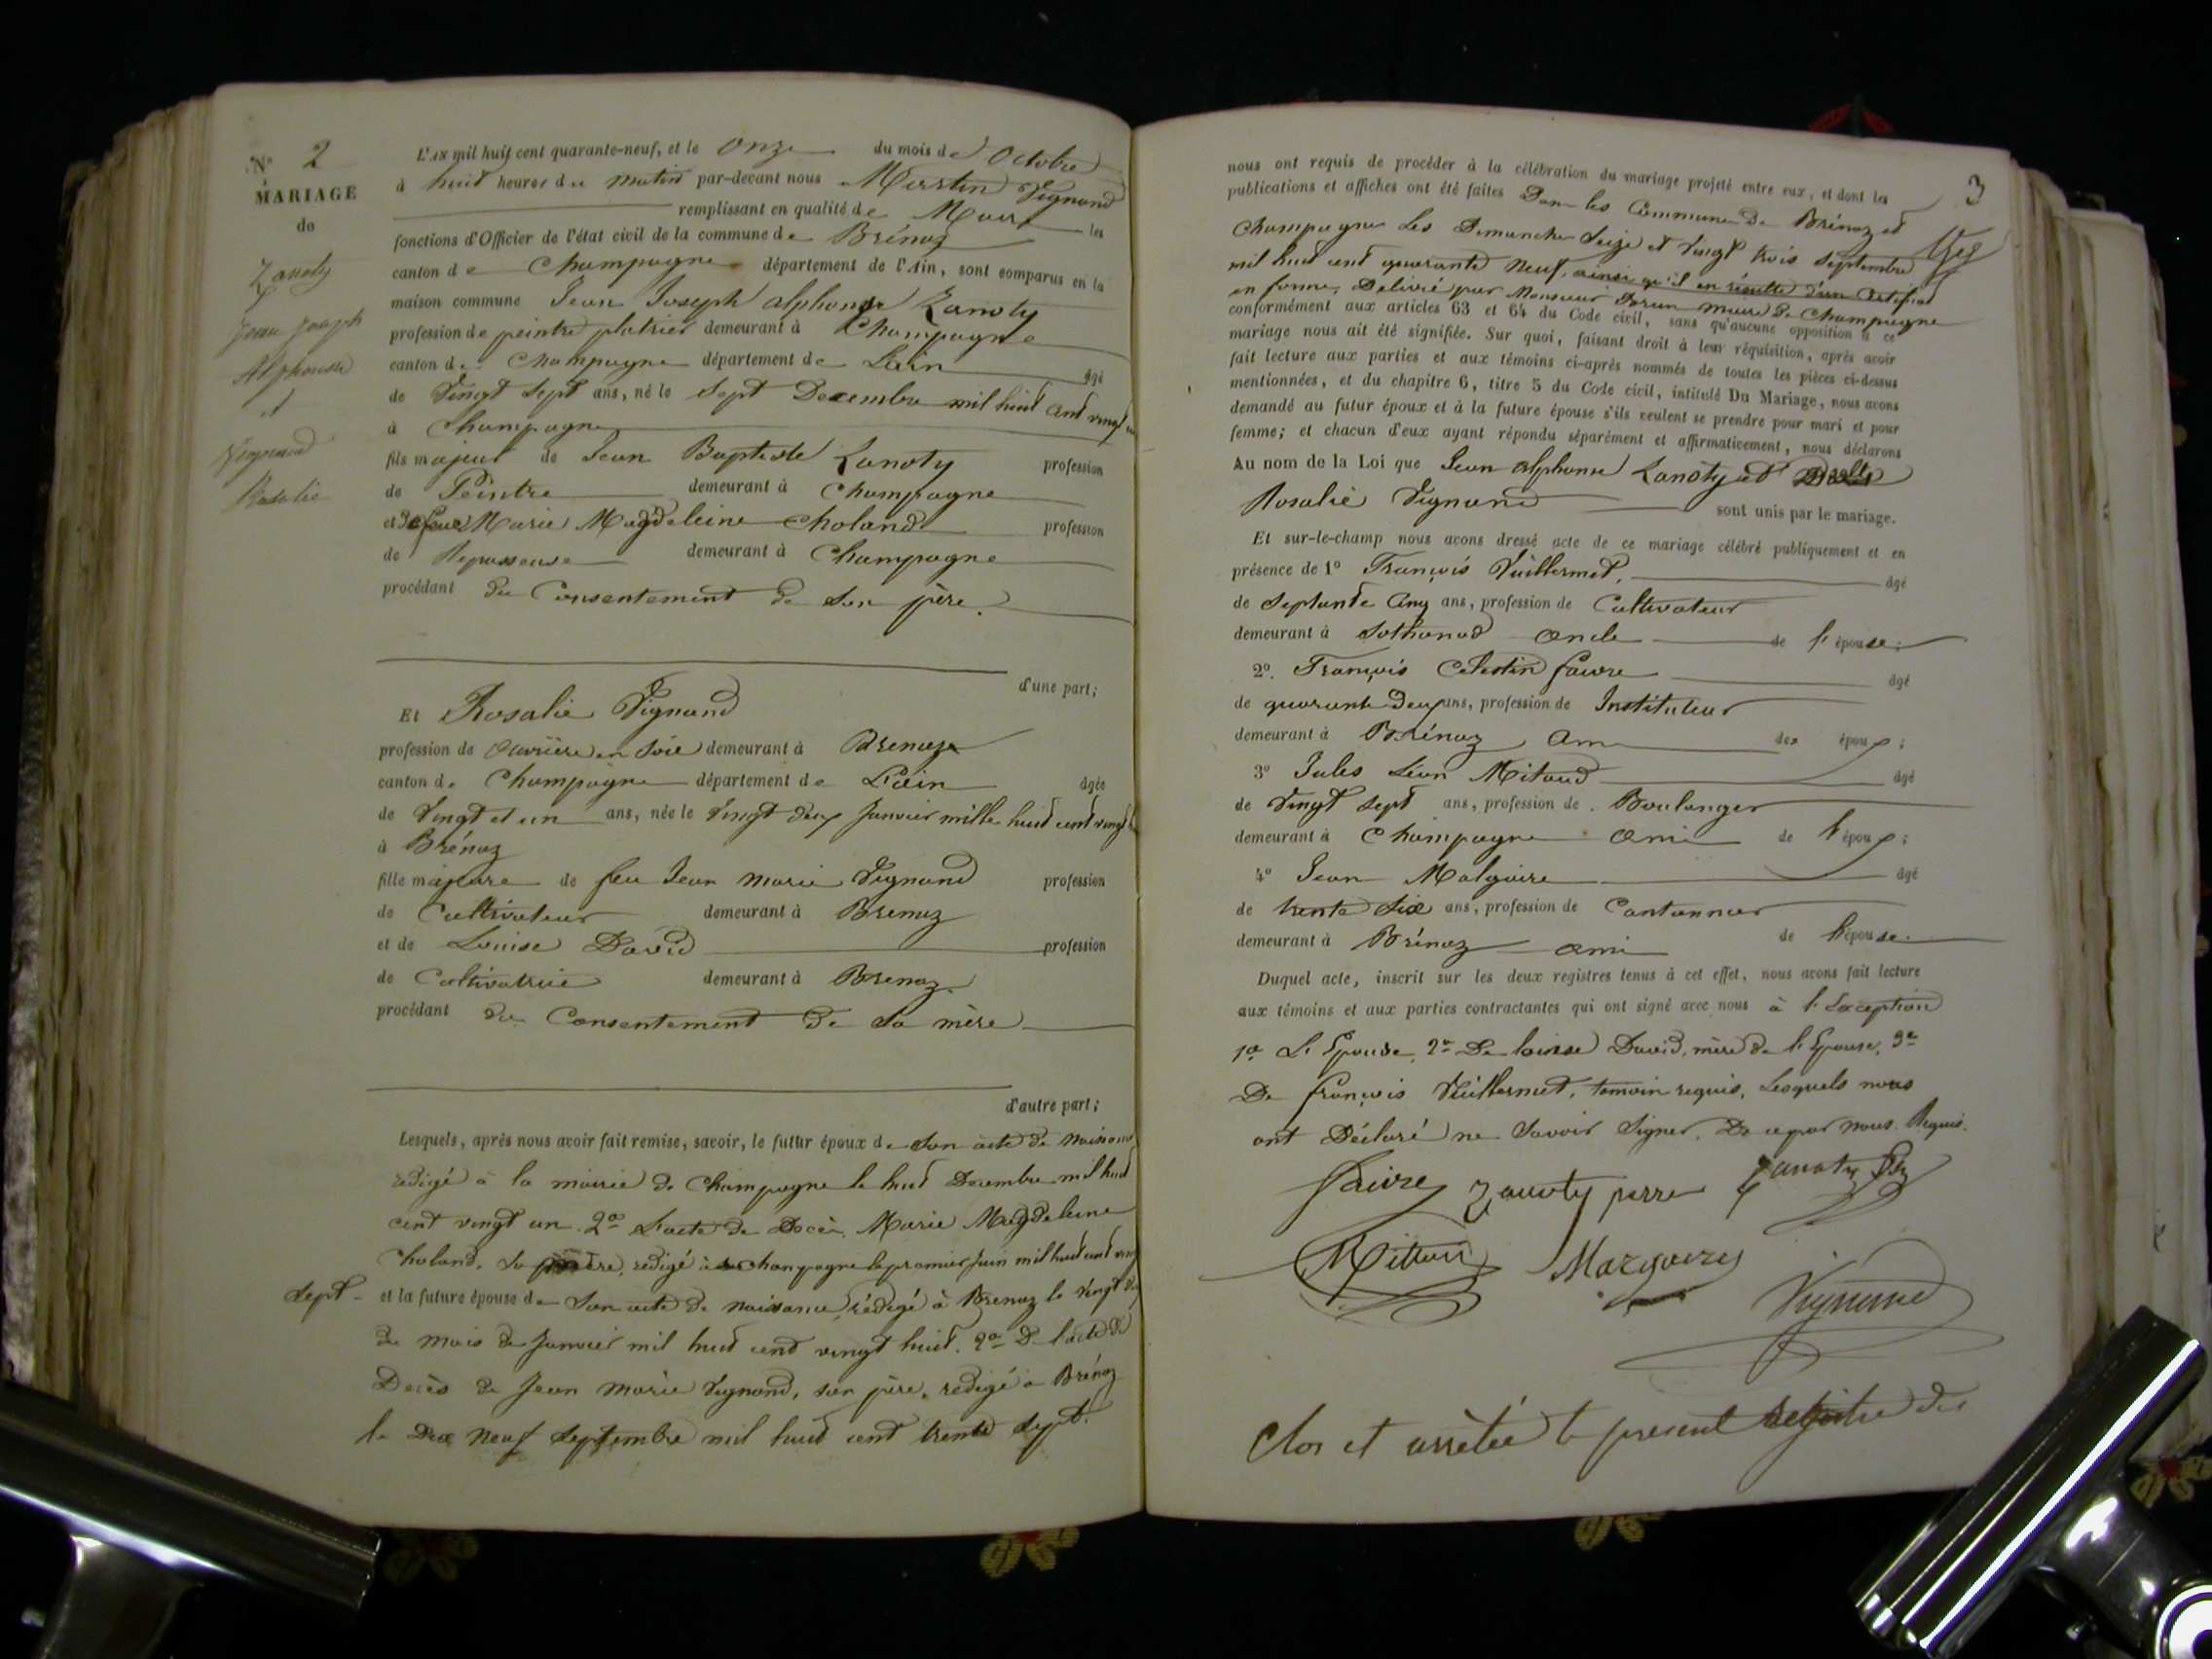 N° 2
MARIAGE
de
Zanoty
Jean Joseph
Alphonse
et
Vignand
Rosalie
L'an mil huit cent quarante-neuf, et le onze du mois d'octobre
à huit heures du matin par-devant nous Vignand
remplissant en qualité de Maire les
fonctions d'Officier de l'état civil de la commune de Brénaz
canton de Champagne département de l'Ain, sont comparus en la
maison commune Jean Joseph alphonse Zanoty
profession de peintre platrier demeurant à Champagne
canton de Champagne département de Lain âgé
de Vingt Sept ans, né le Sept Decembre mil huit cent vingt un
à Champagne
fils majeur de Jean Baptiste Zanoty profession
de Peintre demeurant à Champagne
et de feue Marie Magdeleine Choland profession
de Repasseuse demeurant à Champagne
procédant du Consentement de son père.
d'une part;
Et Rosalie Vignand
profession de ouvrière en soie demeurant à Brenaz
canton de Champagne département de L'ain âgée
de Vingt et un ans, née le Vingt deux Janvier mille huit cent vingt
à Brénaz
fille majeure de feu Jean Marie Vignand profession
de Cultivateur demeurant à Brenaz
et de Louise David profession
de Cultivatrice demeurant à Brenaz
procédant du Consentement de sa mère
d'autre part;
Lesquels, après nous avoir fait remise, savoir, le futur époux de Son acte de Naissance
redigé à la mairie de Champagne le huit Decembre mil huit
cent vingt un. 2° L'acte de Decès Marie Magdeleine
Choland, sa mère, redigé à Champagne le premier Juin mil huit cent vingt
sept - et la future épouse de Son acte de naissance, rédigé à Brenaz le vingt deux
du mois de Janvier mil huit cent vingt huit. 2° De l'acte de
Decès de Jean Marie Vignand, son père, redigé à Brénaz
le Dix Neuf Septembre mil huit cent trente sept.
3
nous ont requis de procéder à la célébration du mariage projeté entre eux, et dont les
publications et affiches ont été faites Dans les Communes de Brénaz et
Champagne Les Dimanches Seize et Vingt trois Septembre
mil huit cent quarante neuf, ainsi qu'il en résulte d'un Certificat
en forme, Delivré par Monsieur maire De Champagne
conformément aux articles 63 et 64 du Code civil, sans qu'aucune opposition à ce
mariage nous ait été signifiée. Sur quoi, faisant droit à leur réquisition, après avoir
fait lecture aux parties et aux témoins ci-après nommés de toutes les pièces ci-dessus
mentionnées, et du chapitre 6, titre 5 du Code civil, intitulé Du Mariage, nous avons
demandé au futur époux et à la future épouse s'ils veulent se prendre pour mari et pour
femme; et chacun d'eux ayant répondu séparément et affirmativement, nous déclarons
Au nom de la Loi que Jean alphonse Zanoty et
Rosalie Vignand sont unis par le mariage.
Et sur-le-champ nous avons dressé acte de ce mariage célébré publiquement et en
présence de 1° François Vuillermet, âgé
de Septante Cinq ans, profession de Cultivateur
demeurant à Sothonod oncle de l'épouse;
2°. François Celestin faivre âgé
de quarante Deux ans, profession de Instituteur
demeurant à Brénaz Ami des époux;
3° Jules Léon Mitaud âgé
de Vingt Sept ans, profession de Boulanger
demeurant à Champagne ami de l'époux;
4° Jean Malgoire âgé
de trente Six ans, profession de Cantonnier
demeurant à Brénaz ami de l'épouse.
Duquel acte, inscrit sur les deux registres tenus à cet effet, nous avons fait lecture
aux témoins et aux parties contractantes qui ont signé avec nous à l'Exception
1° de l'Epouse, 2° De louise David, mère de l'Epouse, 3°
De françois Vuillermet, temoin requis, Lesquels nous
ont Déclaré ne Savoir Signer. De ce par nous Requis.
faivre Zanoty perre Zanoty fils
Mitaud Margoires
Vignand
Clos et arrêtée le present registre des